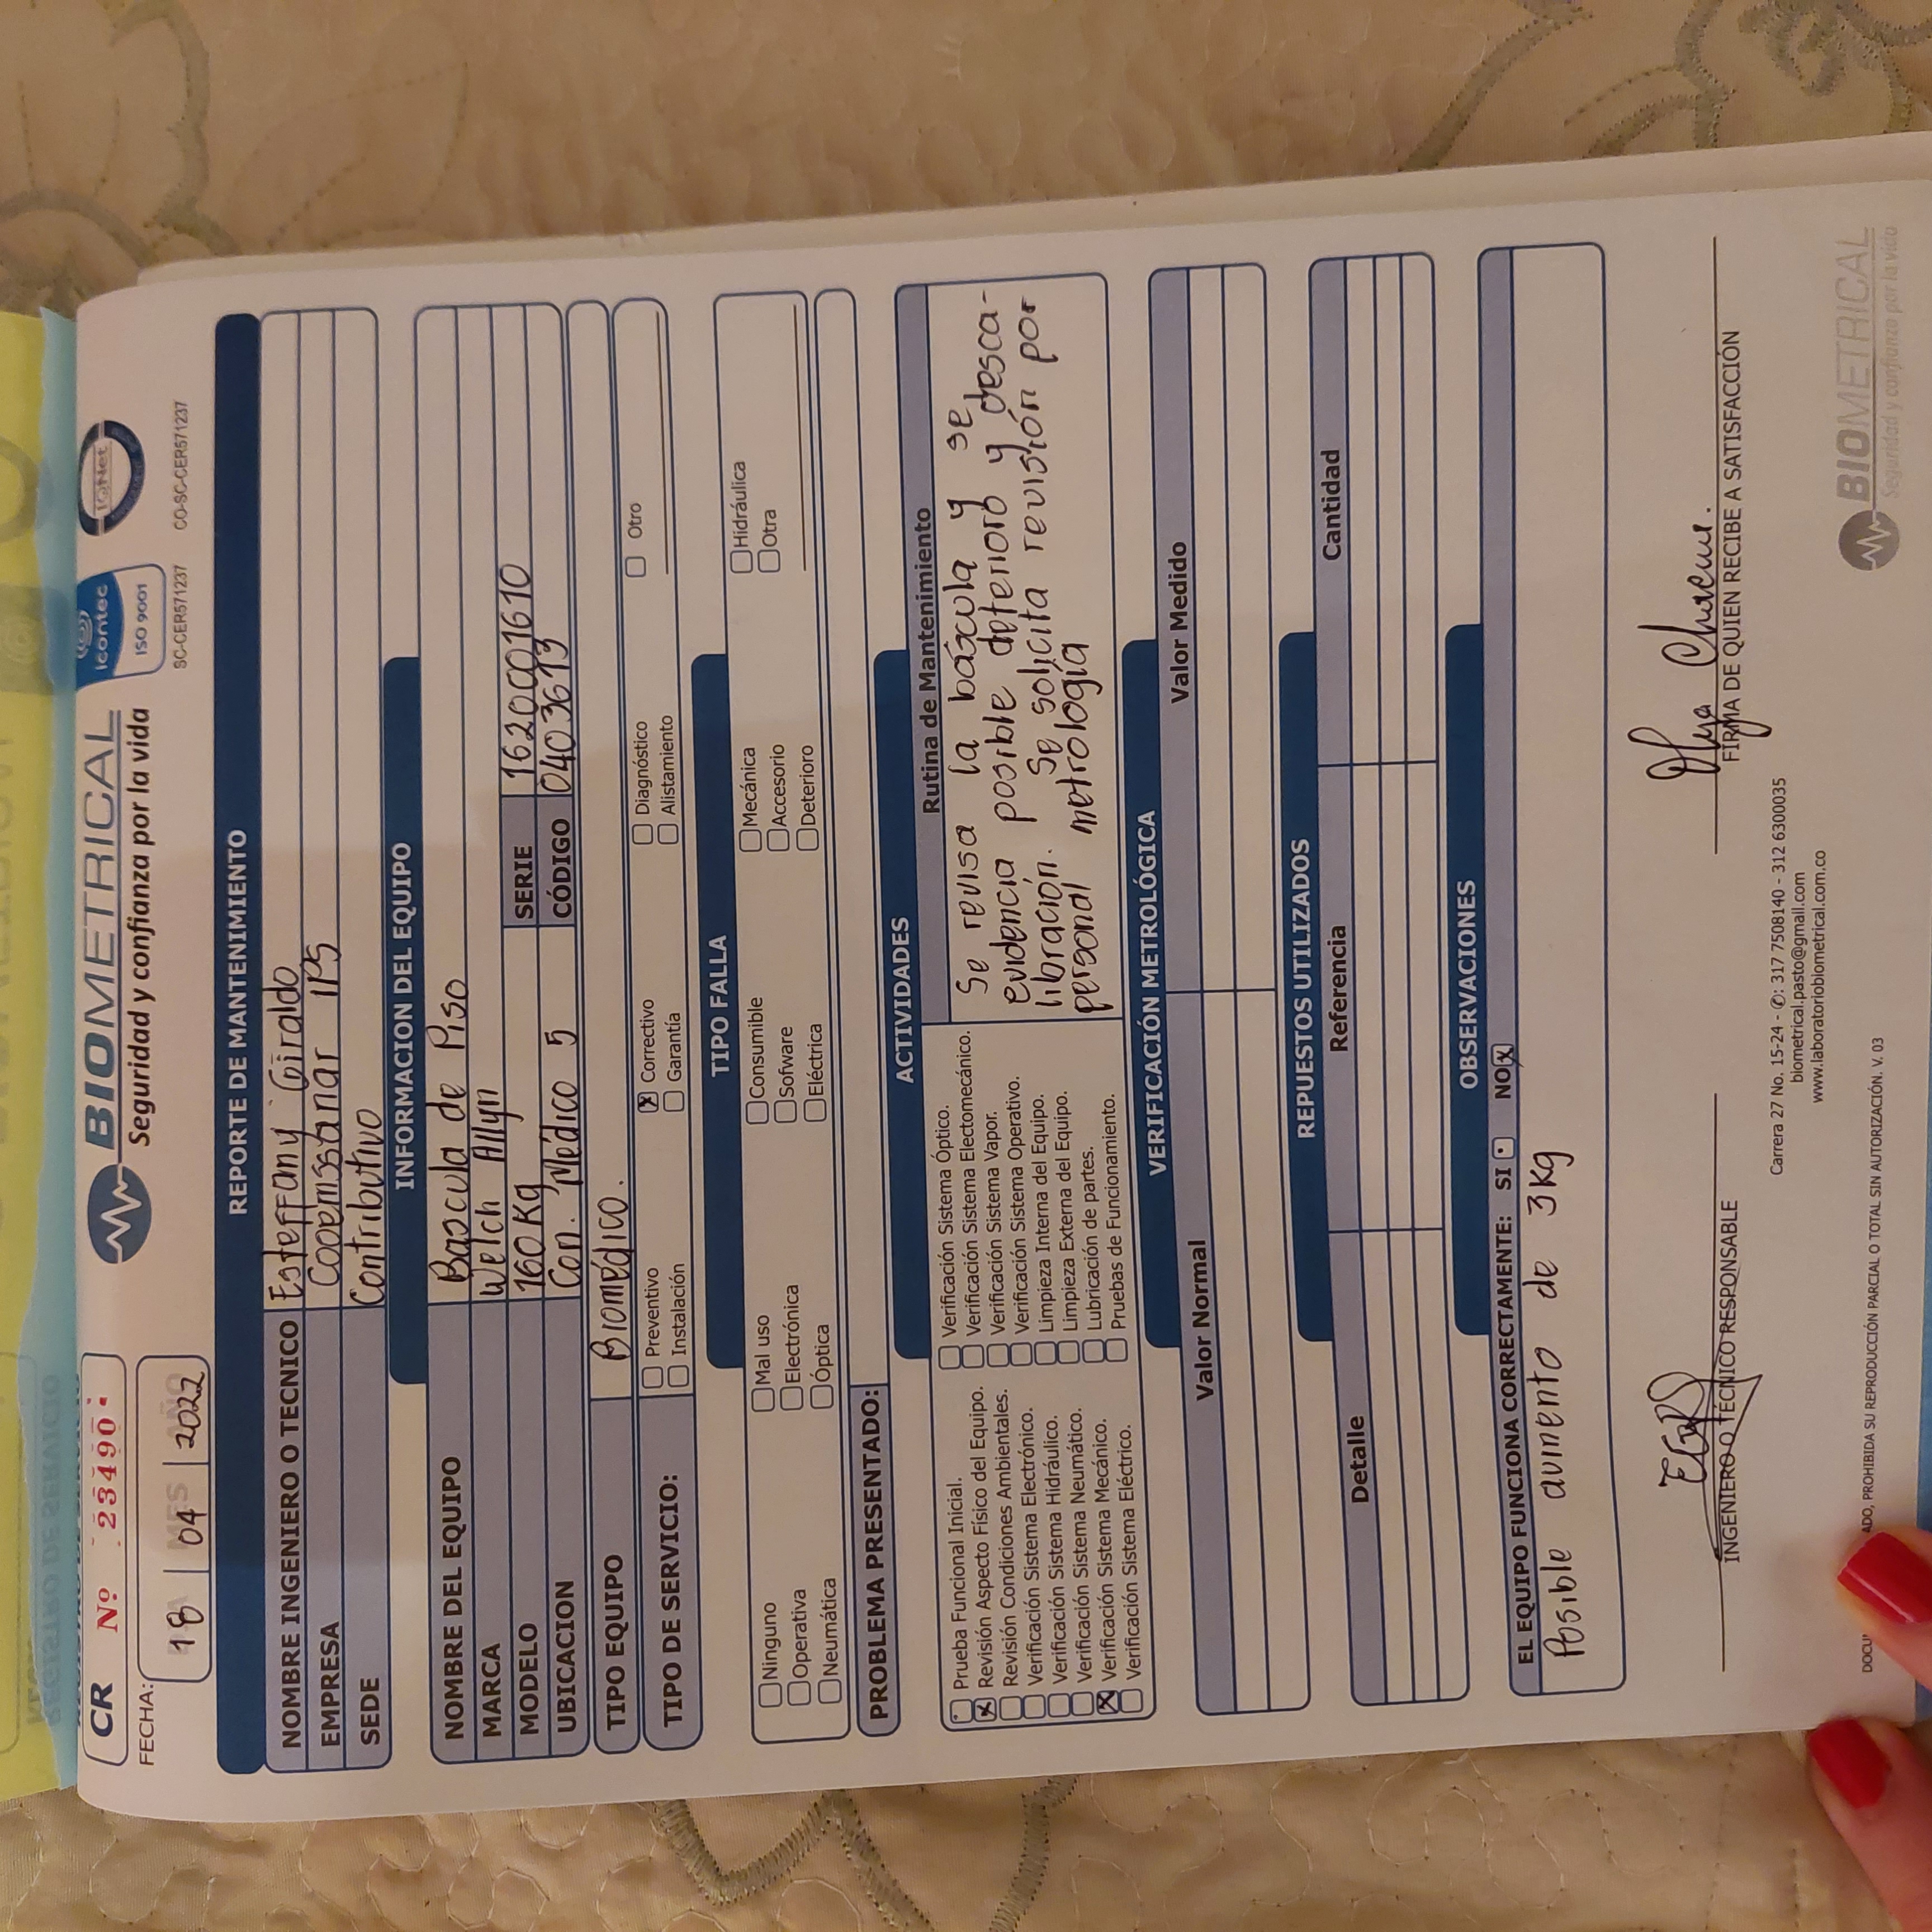 REGISTRO DE SERVICIO
CR Nº 23490
BIOMETRICAL
Seguridad y confianza por la vida
icontec
ISO 9001
SC-CER571237
IQNet
CO-SC-CER571237
FECHA:
DIA MES AÑO
18 04 2022
REPORTE DE MANTENIMIENTO
NOMBRE INGENIERO O TECNICO Esteffany Giraldo
EMPRESA Cooemssanar IPS
SEDE Contributivo
INFORMACION DEL EQUIPO
NOMBRE DEL EQUIPO Bascula de Piso
MARCA Welch Allyn
MODELO 160 Kg SERIE 1620001610
UBICACION Con. Médico 5 CÓDIGO 0403613
TIPO EQUIPO Biomédico.
TIPO DE SERVICIO:
Preventivo Correctivo Diagnóstico Otro
Instalación Garantía Alistamiento
TIPO FALLA
Ninguno Mal uso Consumible Mecánica Hidráulica
Operativa Electrónica Sofware Accesorio Otra
Neumática Óptica Eléctrica Deterioro
PROBLEMA PRESENTADO:
ACTIVIDADES
Prueba Funcional Inicial.
Revisión Aspecto Físico del Equipo.
Revisión Condiciones Ambientales.
Verificación Sistema Electrónico.
Verificación Sistema Hidráulico.
Verificación Sistema Neumático.
Verificación Sistema Mecánico.
Verificación Sistema Eléctrico.
Verificación Sistema Óptico.
Verificación Sistema Electomecánico.
Verificación Sistema Vapor.
Verificación Sistema Operativo.
Limpieza Interna del Equipo.
Limpieza Externa del Equipo.
Lubricación de partes.
Pruebas de Funcionamiento.
Rutina de Mantenimiento
Se revisa la báscula y se
evidencia posible deterioro y desca-
libración. Se solicita revisión por
personal metrología
VERIFICACIÓN METROLÓGICA
Valor Normal Valor Medido
REPUESTOS UTILIZADOS
Detalle Referencia Cantidad
OBSERVACIONES
EL EQUIPO FUNCIONA CORRECTAMENTE: SI NO
Posible aumento de 3kg
Olga
INGENIERO O TÉCNICO RESPONSABLE
FIRMA DE QUIEN RECIBE A SATISFACCIÓN
Carrera 27 No. 15-24 - ✆: 317 7508140 - 312 6300035
biometrical.pasto@gmail.com
www.laboratoriobiometrical.com.co
ADO, PROHIBIDA SU REPRODUCCIÓN PARCIAL O TOTAL SIN AUTORIZACIÓN. V. 03
BIOMETRICAL
Seguridad y confianza por la vida